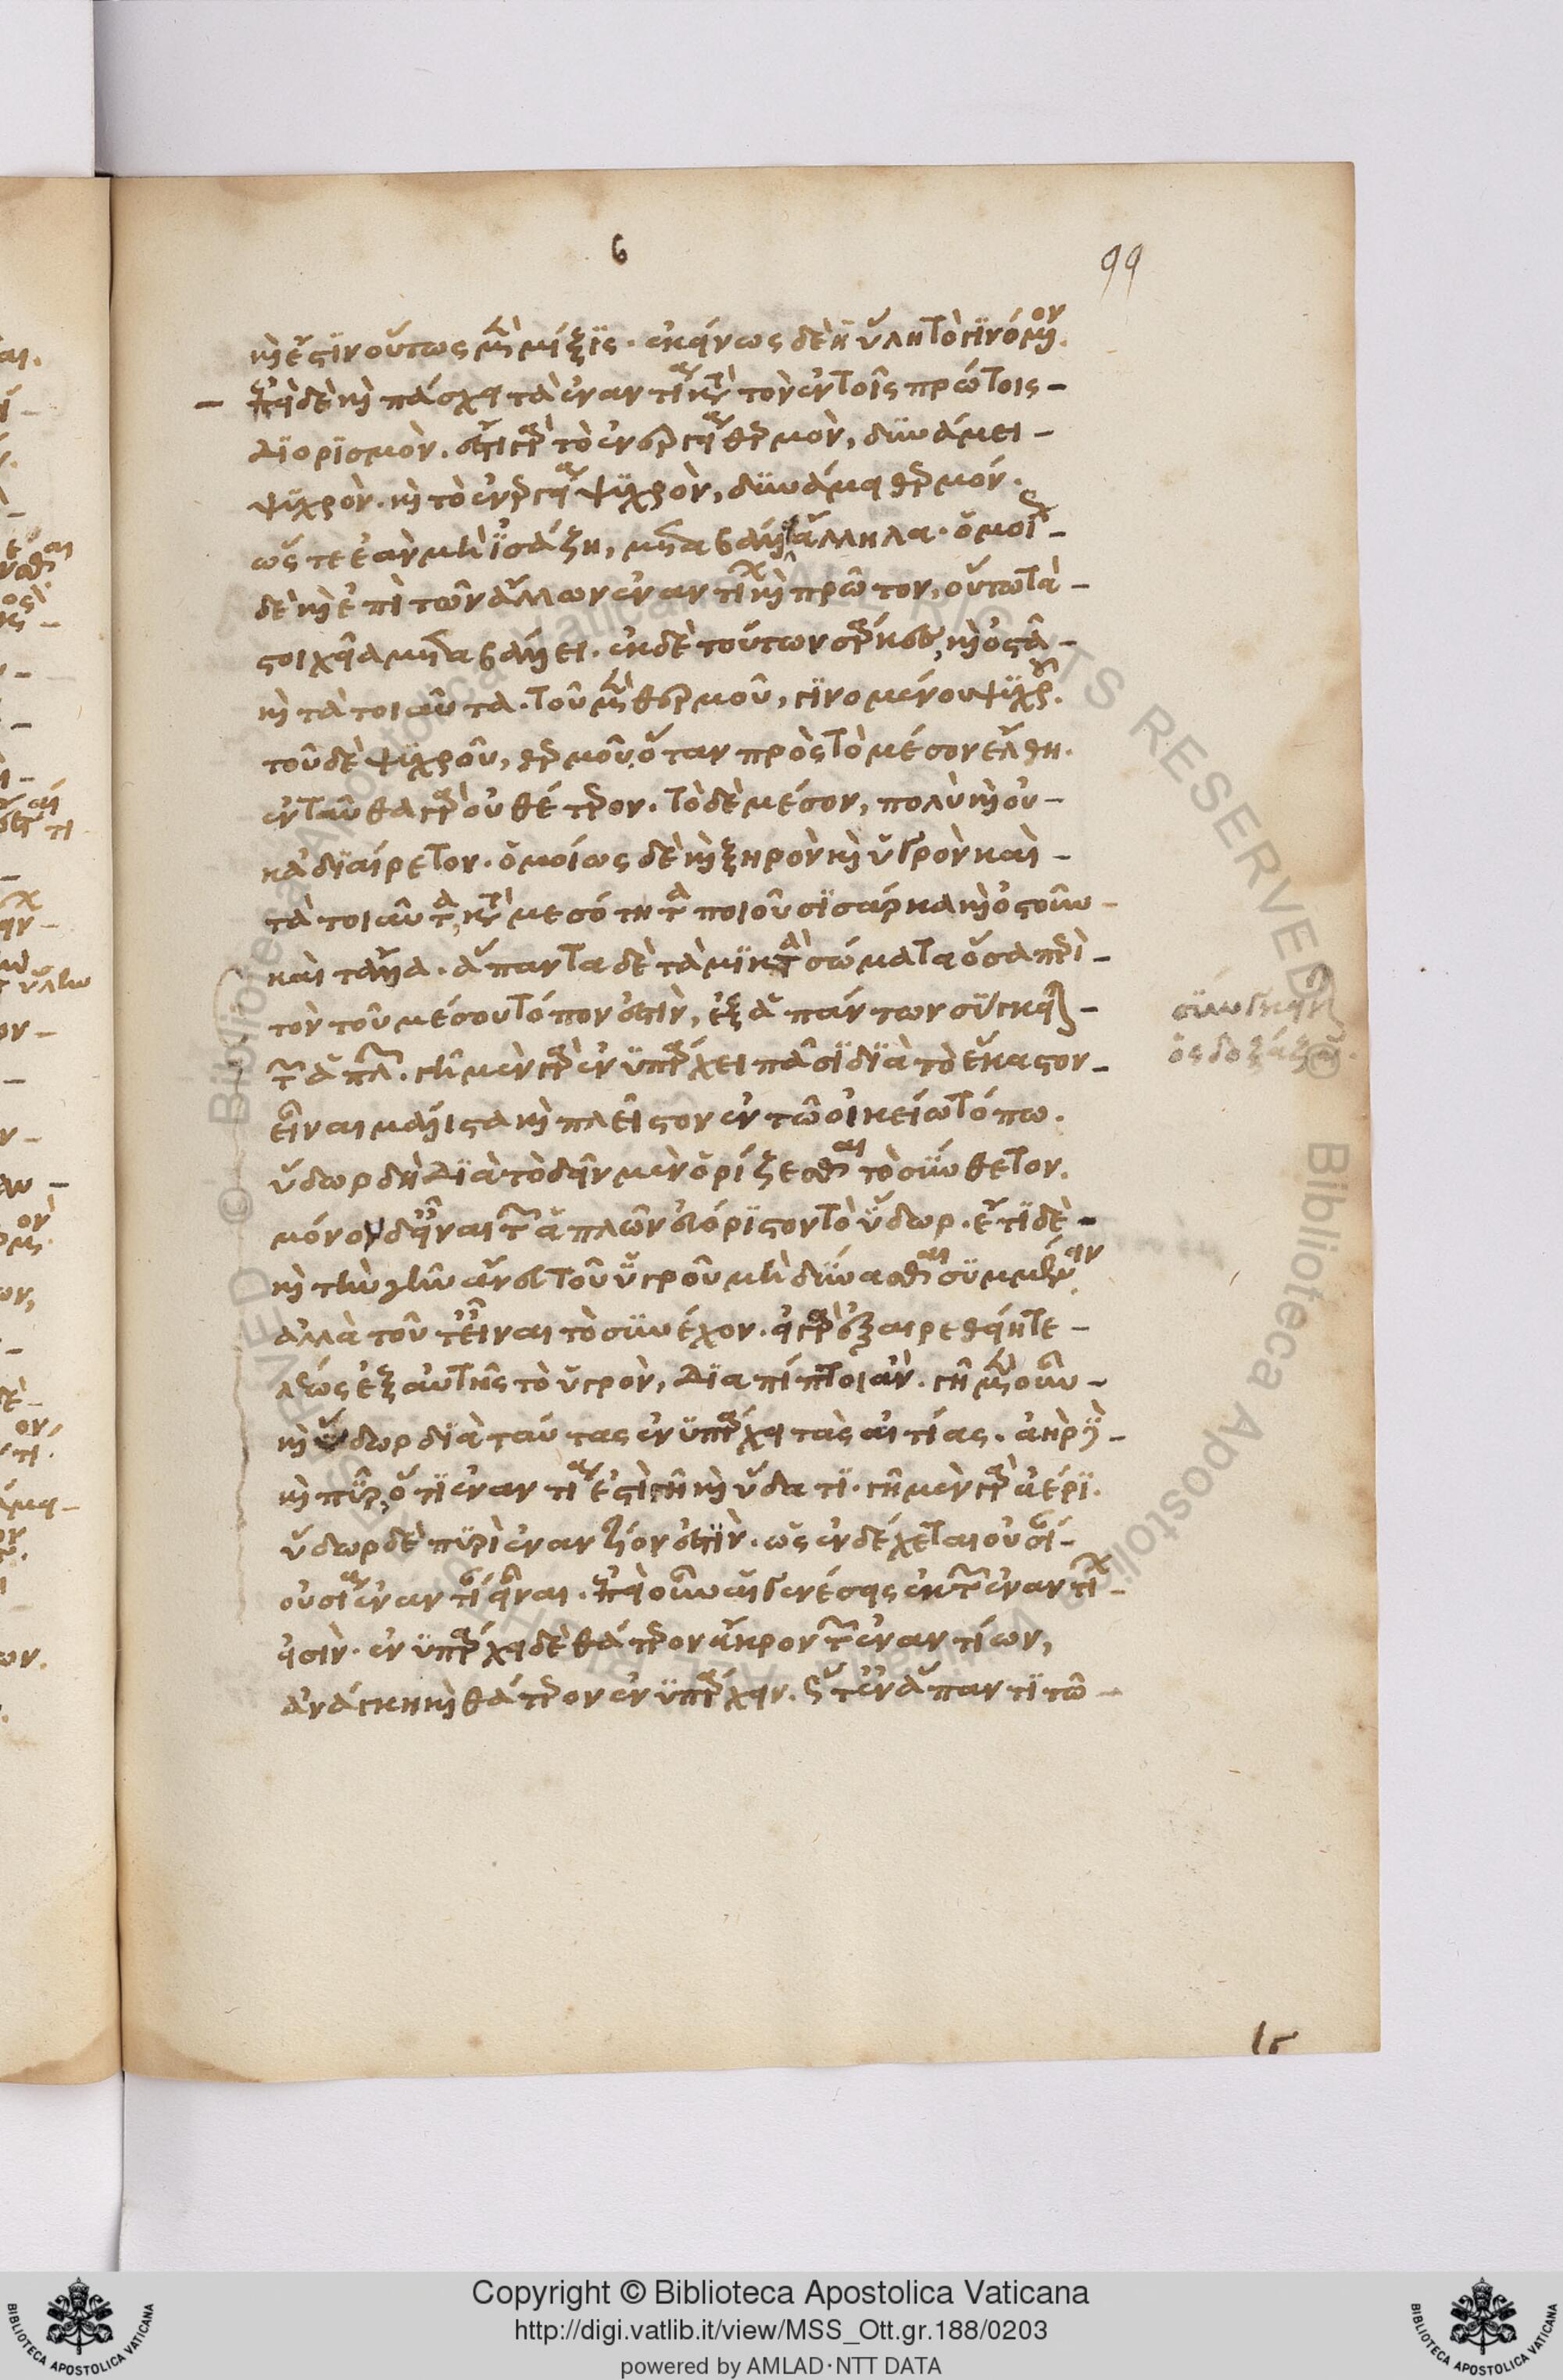 6
99
καὶ ἔστιν οὕτως μὲν μίξις. ἐκείνως δὲ ἡ ὕλη τὸ γινόμενον.
– ἐπεὶ δὲ καὶ πάσχει τὰ ἐναντία κατὰ τὸν ἐν τοῖς πρώτοις –
διορισμὸν. ἔστι γὰρ τὸ ἐνεργεία θερμὸν, δυνάμει –
ψυχρὸν. καὶ τὸ ἐνεργεία ψυχρὸν, δυνάμει θερμόν.
ὥστε ἐὰν μὴ ἰσάζη, μεταβάλλει ἄλληλα. ὁμοίως –
δὲ καὶ ἐπὶ τῶν ἄλλων ἐναντίων καὶ πρῶτον, οὕτω τὰ –
στοιχεῖα μεταβάλλει. ἐκ δὲ τούτων σάρκες, καὶ ὀστᾶ –
καὶ τὰ τοιαῦτα. τοῦ μὲν θερμοῦ, γινομένου ψυχροῦ.
τοῦ δὲ ψυχροῦ, θερμοῦ. ὅταν πρὸς τὸ μέσον ἔλθη.
ἐνταῦθα γὰρ οὐθέτερον. τὸ δὲ μέσον, πολὺ καὶ οὐ –
κ ἀδιαίρετον. ὁμοίως δὲ καὶ ξηρὸν καὶ ὑγρὸν καὶ –
τὰ τοιαῦτα, κατὰ μεσότητα ποιοῦσι σάρκα καὶ ὀστοῦν –
καὶ τἄλλα. ἅπαντα δὲ τὰ μικτὰ σώματα ὅσα περὶ –
τὸν τοῦ μέσου τόπον ἐστὶν, ἐξ ἁπάντων σύγκειται –
τῶν ἁπλῶν. γῆ μὲν γὰρ ἐνυπάρχει πᾶσι διὰ τὸ ἕκαστον –
εἶναι μάλιστα καὶ πλεῖστον ἐν τῶ οἰκείω τόπω.
ὕδωρ δὴ διὰ τὸ δεῖν μὲν ὁρίζεσθαι τὸ σύνθετον.
μόνον δ' εἶναι τῶν ἁπλῶν εὐόριστον τὸ ὕδωρ. ἔτι δὲ –
καὶ τὴν γῆν ἄνευ τοῦ ὑγροῦ μὴ δύνασθαι συμμένειν.
ἀλλὰ τοῦτ' εἶναι τὸ συνέχον. εἰ γὰρ ἐξαιρεθείη τε –
λέως ἐξ αὐτῆς τὸ ὑγρὸν, διαπίπτοι ἂν. γῆ μὲν οὖν –
καὶ ὕδωρ διὰ ταύτας ἐνυπάρχει τὰς αἰτίας. ἀὴρ δὲ –
καὶ πῦρ, ὅτι ἐναντία ἐστὶ γῆ καὶ ὕδατι. γῆ μὲν γὰρ ἀέρι.
ὕδωρ δὲ πυρὶ ἐναντίον ἐστὶν. ὡς ἐνδέχεται οὐσί –
αν οὐσία ἐναντίον εἶναι. ἐπεὶ οὖν αἱ γενέσεις ἐκ τῶν ἐναντίων –
εἰσὶν. ἐνυπάρχει δὲ θάτερον ἄκρον τῶν ἐναντίων,
ἀνάγκη καὶ θάτερον ἐνυπάρχειν. ὥστ' ἐν ἅπαντι τῶ –